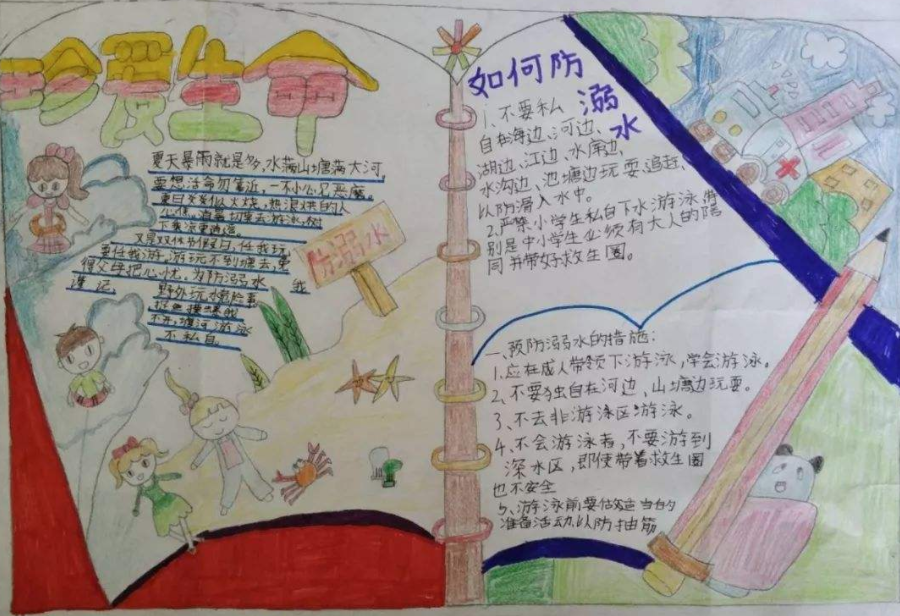 珍爱生命
夏天暴雨就是多,水满山塘满大河,
要想活命勿靠近,一不小心见恶魔。
夏日炎炎似火烧,热浪烘的人
心焦
下
又是双休节假日,任我玩
要任我游,游玩不到塘去,累
得父母把心忧,为防溺水 我
谨记,
野外玩水危险事
不开,塘河游泳
不私自。
防溺水
如何防
溺
水
1、不要私
自在海边、河边、
湖边、江边、水库边、
水沟边、池塘边玩耍追赶,
以防滑入水中。
2.严禁小学生私自下水游泳,特
别是中小学生必须有大人的陪
同并带好救生圈。
一、预防溺水的措施:
1.应在成人带领下游泳,学会游泳。
2、不要独自在河边、山塘边玩耍。
3、不去非游泳区游泳。
4、不会游泳者,不要游到
深水区,即使带着救生圈
也不安全
5、游泳前要做适当的
准备活动以防抽筋